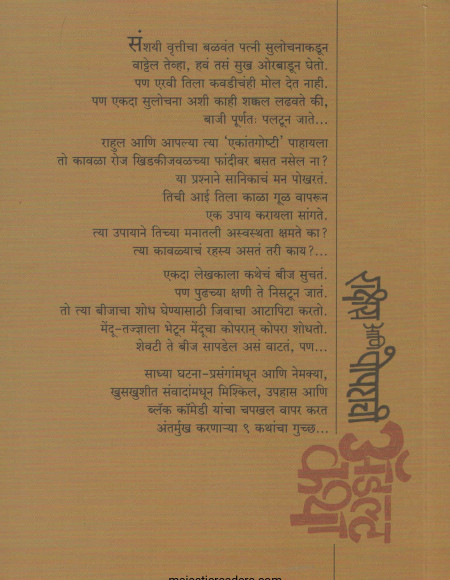 संशयी वृत्तीचा बळवंत पत्नी सुलोचनाकडून
वाट्टेल तेव्हा, हवं तसं सुख ओरबाडून घेतो.
पण एरवी तिला कवडीचंही मोल देत नाही.
पण एकदा सुलोचना अशी काही शक्कल लढवते की,
बाजी पूर्णतः पलटून जाते...
राहुल आणि आपल्या त्या 'एकांतगोष्टी' पाहायला
तो कावळा रोज खिडकीजवळच्या फांदीवर बसत नसेल ना?
या प्रश्नाने सानिकाचं मन पोखरतं.
तिची आई तिला काळा गूळ वापरून
एक उपाय करायला सांगते.
त्या उपायाने तिच्या मनातली अस्वस्थता क्षमते का?
त्या कावळ्याचं रहस्य असतं तरी काय?...
एकदा लेखकाला कथेचं बीज सुचतं.
पण पुढच्या क्षणी ते निसटून जातं.
तो त्या बीजाचा शोध घेण्यासाठी जिवाचा आटापिटा करतो.
मेंदू-तज्ज्ञाला भेटून मेंदूचा कोपरान् कोपरा शोधतो.
शेवटी ते बीज सापडेल असं वाटतं, पण...
साध्या घटना-प्रसंगांमधून आणि नेमक्या,
खुसखुशीत संवादांमधून मिश्किल, उपहास आणि
ब्लॅक कॉमेडी यांचा चपखल वापर करत
अंतर्मुख करणाऱ्या ९ कथांचा गुच्छ...
आणि
अॅडल्ट
कथा